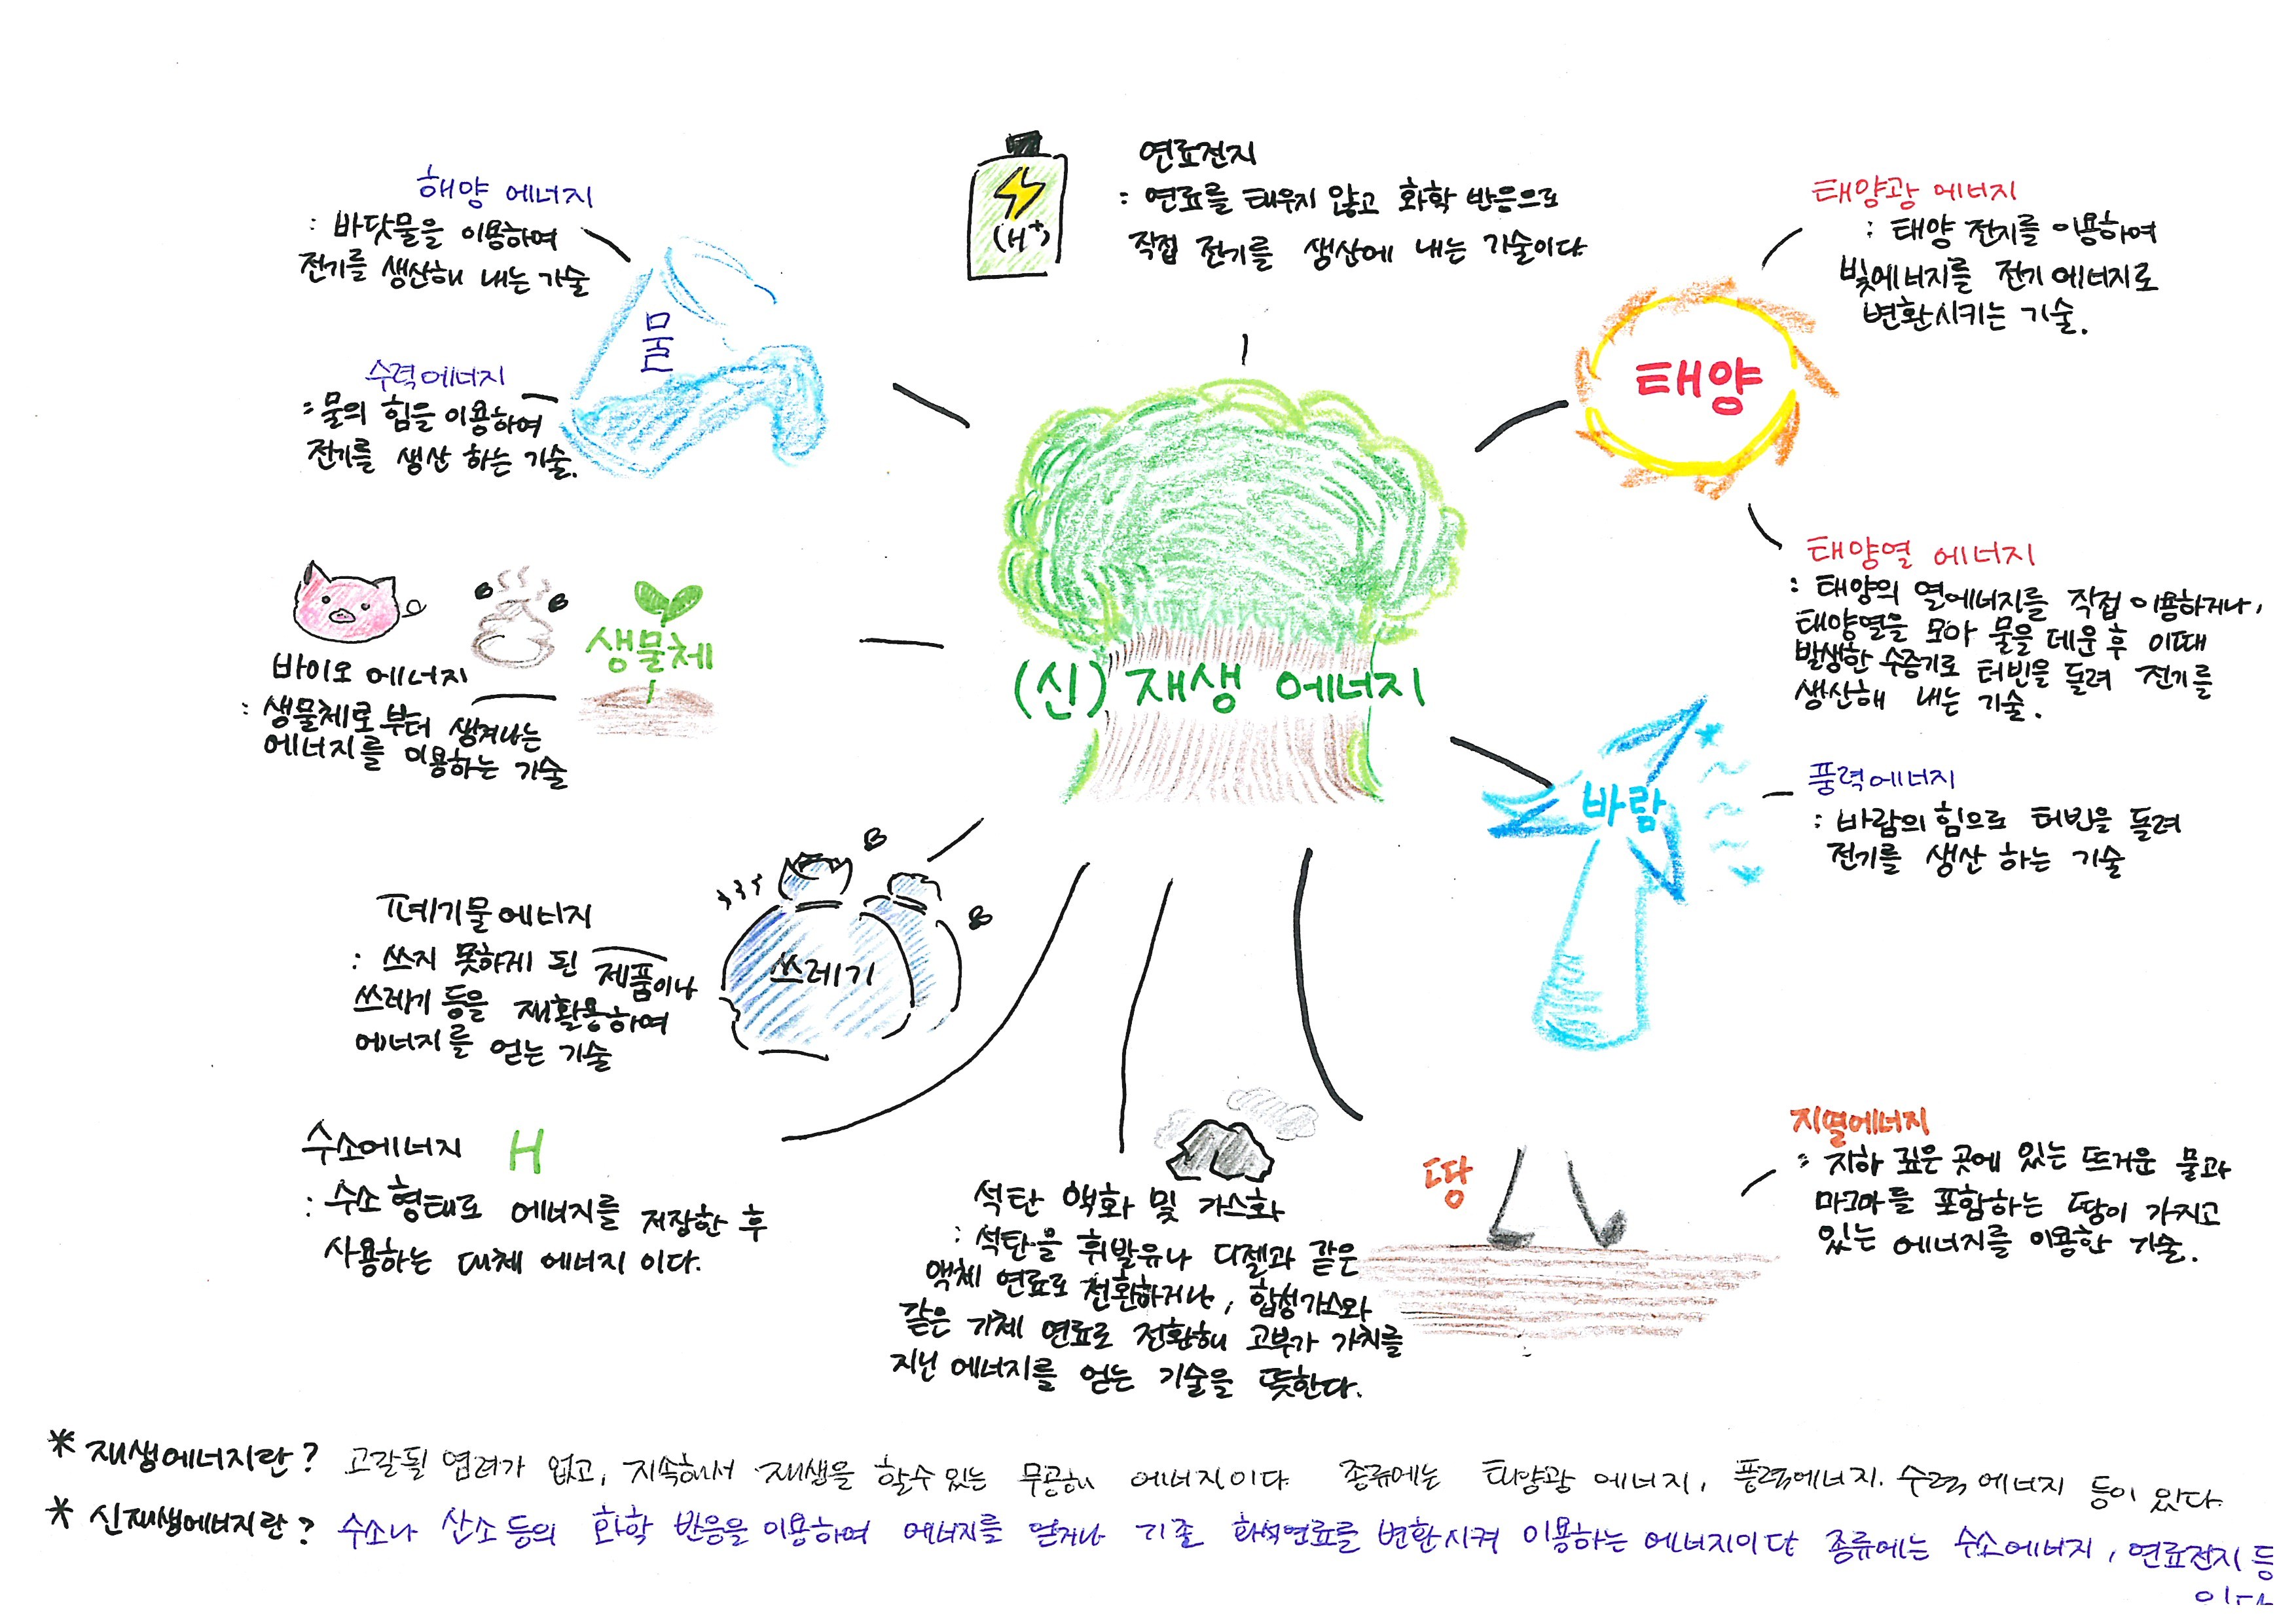 해양 에너지
: 바닷물을 이용하여
전기를 생산해 내는 기술
수력에너지
: 물의 힘을 이용하여
전기를 생산 하는 기술.
물
연료전지
: 연료를 태우지 않고 화학 반응으로
직접 전기를 생산에 내는 기술이다
(H+)
태양광 에너지
: 태양 전지를 이용하여
빛에너지를 전기 에너지로
변환시키는 기술.
태양
태양열 에너지
: 태양의 열에너지를 직접 이용하거나,
태양열을 모아 물을 데운 후 이때
발생한 수증기로 터빈을 돌려 전기를
생산해 내는 기술.
(신) 재생 에너지
생물체
바이오 에너지
: 생물체로부터 생겨나는
에너지를 이용하는 기술
바람
풍력에너지
: 바람의 힘으로 터빈을 돌려
전기를 생산 하는 기술
폐기물에너지
: 쓰지 못하게 된 제품이나
쓰레기 등을 재활용하여
에너지를 얻는 기술
쓰레기
수소에너지 H
: 수소 형태로 에너지를 저장한 후
사용하는 대체 에너지 이다.
석탄 액화 및 가스화
: 석탄을 휘발유나 디젤과 같은
액체 연료로 전환하거나, 합성가스와
같은 기체 연료로 전환해 고부가 가치를
지닌 에너지를 얻는 기술을 뜻한다.
땅
지열에너지
: 지하 깊은 곳에 있는 뜨거운 물과
마그마를 포함하는 땅이 가지고
있는 에너지를 이용한 기술.
* 재생에너지란? 고갈될 염려가 없고, 지속해서 재생을 할수 있는 무공해 에너지이다. 종류에는 태양광 에너지, 풍력에너지. 수력 에너지 등이 있다.
* 신재생에너지란? 수소나 산소 등의 화학 반응을 이용하여 에너지를 얻거나 기존 화석연료를 변환시켜 이용하는 에너지이다 종류에는 수소에너지, 연료전지 등
이다